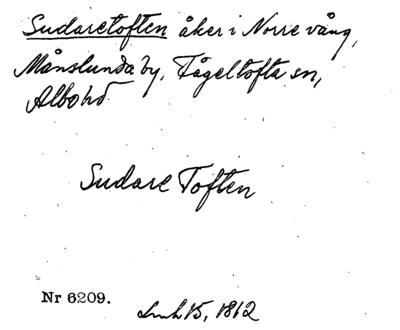 Sudaretoften åker i Norre vång,
Månslunda by, Fågeltofta sn,
Albo hd
Sudare Toften
Nr 6209.
15, 1812